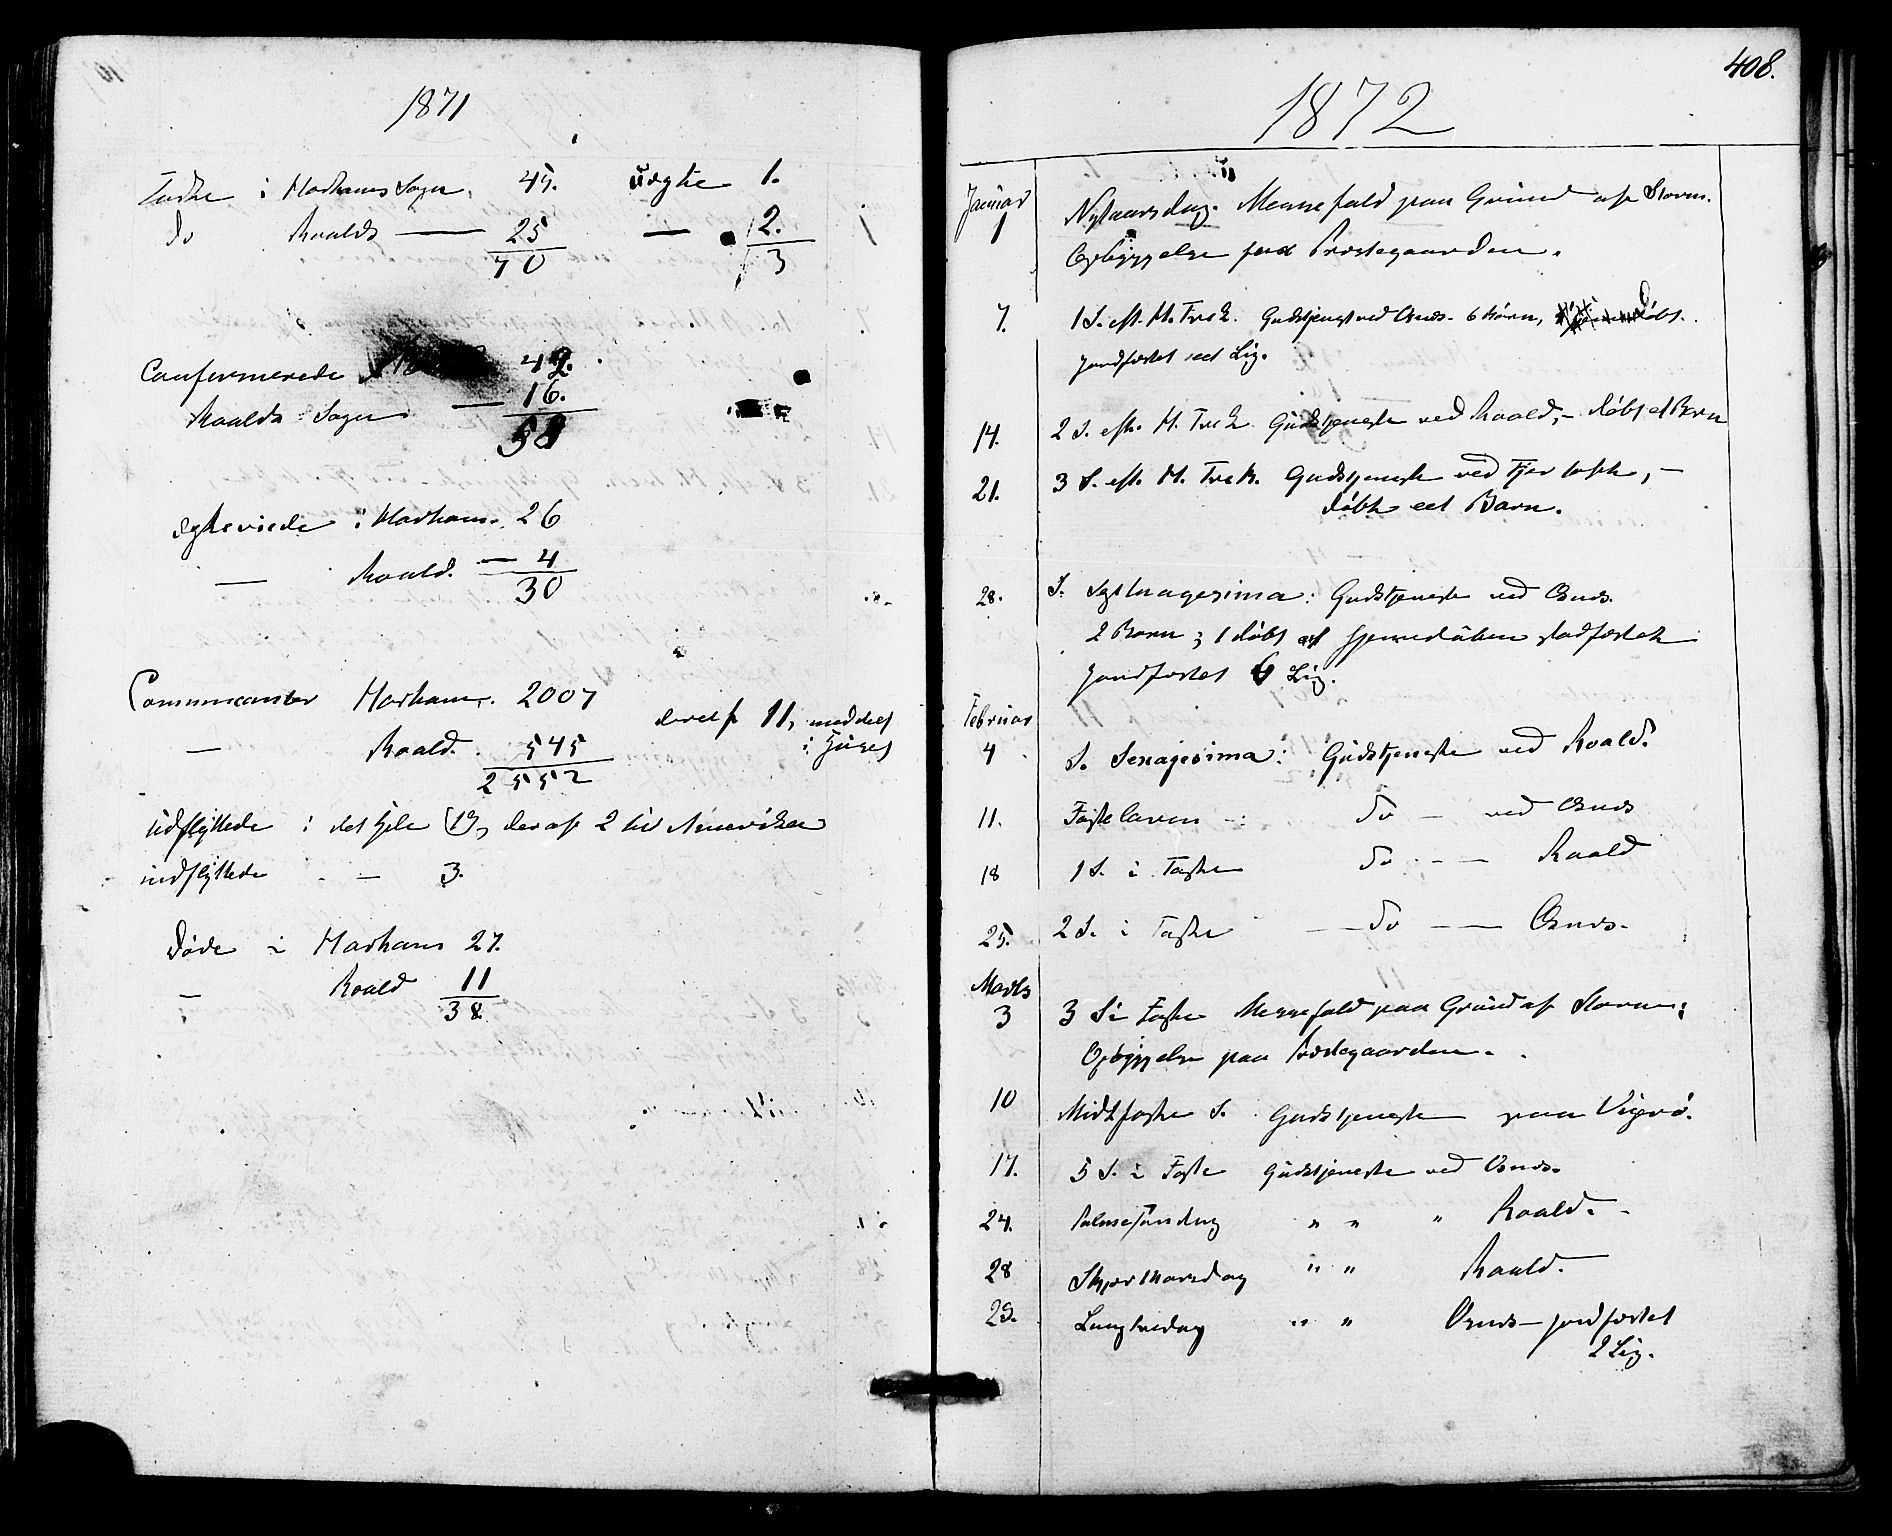 1871
Fødte i Harhams Sogn. 45. Uægte 1.
do Roalds — 25 — 2.
70 3
Confirmerede 42.
Roalds Sogn — 16.
58
Egteviede i Harham. 26
— Roald. — 4
30
Communicanter Harham. 2007
deraf 11, meddelt
— Roald. 545 i Huset
2552
Udflyttede i det hele 19, deraf 2 til Amerika
indflyttede — 3.
Døde i Harham 27.
— Roald 11
38
408.
1872
Januar
1 Nytaarsdag. Messefald paa Grund af Storm.
Opbyggelse paa Præstegaarden.
7. 1 S. eft. H. Tre K. Gudstjeneste ved Osnes. 6 Børn, døbt.
Jordfæstet eet Lig.
14. 2 S. eft. H. Tre K. Gudstjeneste ved Roald, – døbt et Barn
21. 3 S. eft. H. Tre K. Gudstjeneste ved Fjertoft, –
døbt eet Barn.
28. S. Septuagesima: Gudstjeneste ved Osnes.
2 Børn; 1 døbt et hjemmedøben stadfæstet
Jordfæstet 6 Lig.
Februar
4 S. Sexagesima: Gudstjeneste ved Roald.
11. Fastelavn – do – ved Osnes
18 1 S. i Faste do – – Roald
25. 2 S. i Faste — do — — Osnes.
Marts
3 3 S. i Faste Messefald paa Grund af Storm;
Opbyggelse paa Præstegaarden.
10 Midtfaste S. Gudstjeneste paa Vigrø.
17. 5 S. i Faste Gudstjeneste ved Osnes.
24. Palmesøndag " " " Roald. –
28 Skjærthorsdag " " Roald. —
29. Langfredag " " Osnes – jordfæstet
2 Lig.